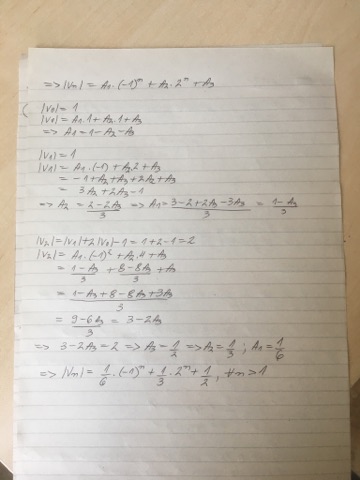 => |Vn| = A1·(-1)^n + A2·2^n + A3
|V0| = 1
|V0| = A1·1 + A2·1 + A3
=> A1 = 1 - A2 - A3
|V1| = 1
|V1| = A1·(-1) + A2·2 + A3
= -1 + A2 + A3 + 2A2 + A3
= 3A2 + 2A3 - 1
=> A2 = (2 - 2A3)/3 => A1 = (3 - 2 + 2A3 - 3A3)/3 = (1 - A3)/3
|V2| = |V1| + 2|V0| - 1 = 1 + 2 - 1 = 2
|V2| = A1·(-1)^2 + A2·4 + A3
= (1 - A3)/3 + (8 - 8A3)/3 + A3
= (1 - A3 + 8 - 8A3 + 3A3)/3
= (9 - 6A3)/3 = 3 - 2A3
=> 3 - 2A3 = 2 => A3 = 1/2 => A2 = 1/3 ; A1 = 1/6
=> |Vn| = 1/6·(-1)^n + 1/3·2^n + 1/2, ∀n > 1